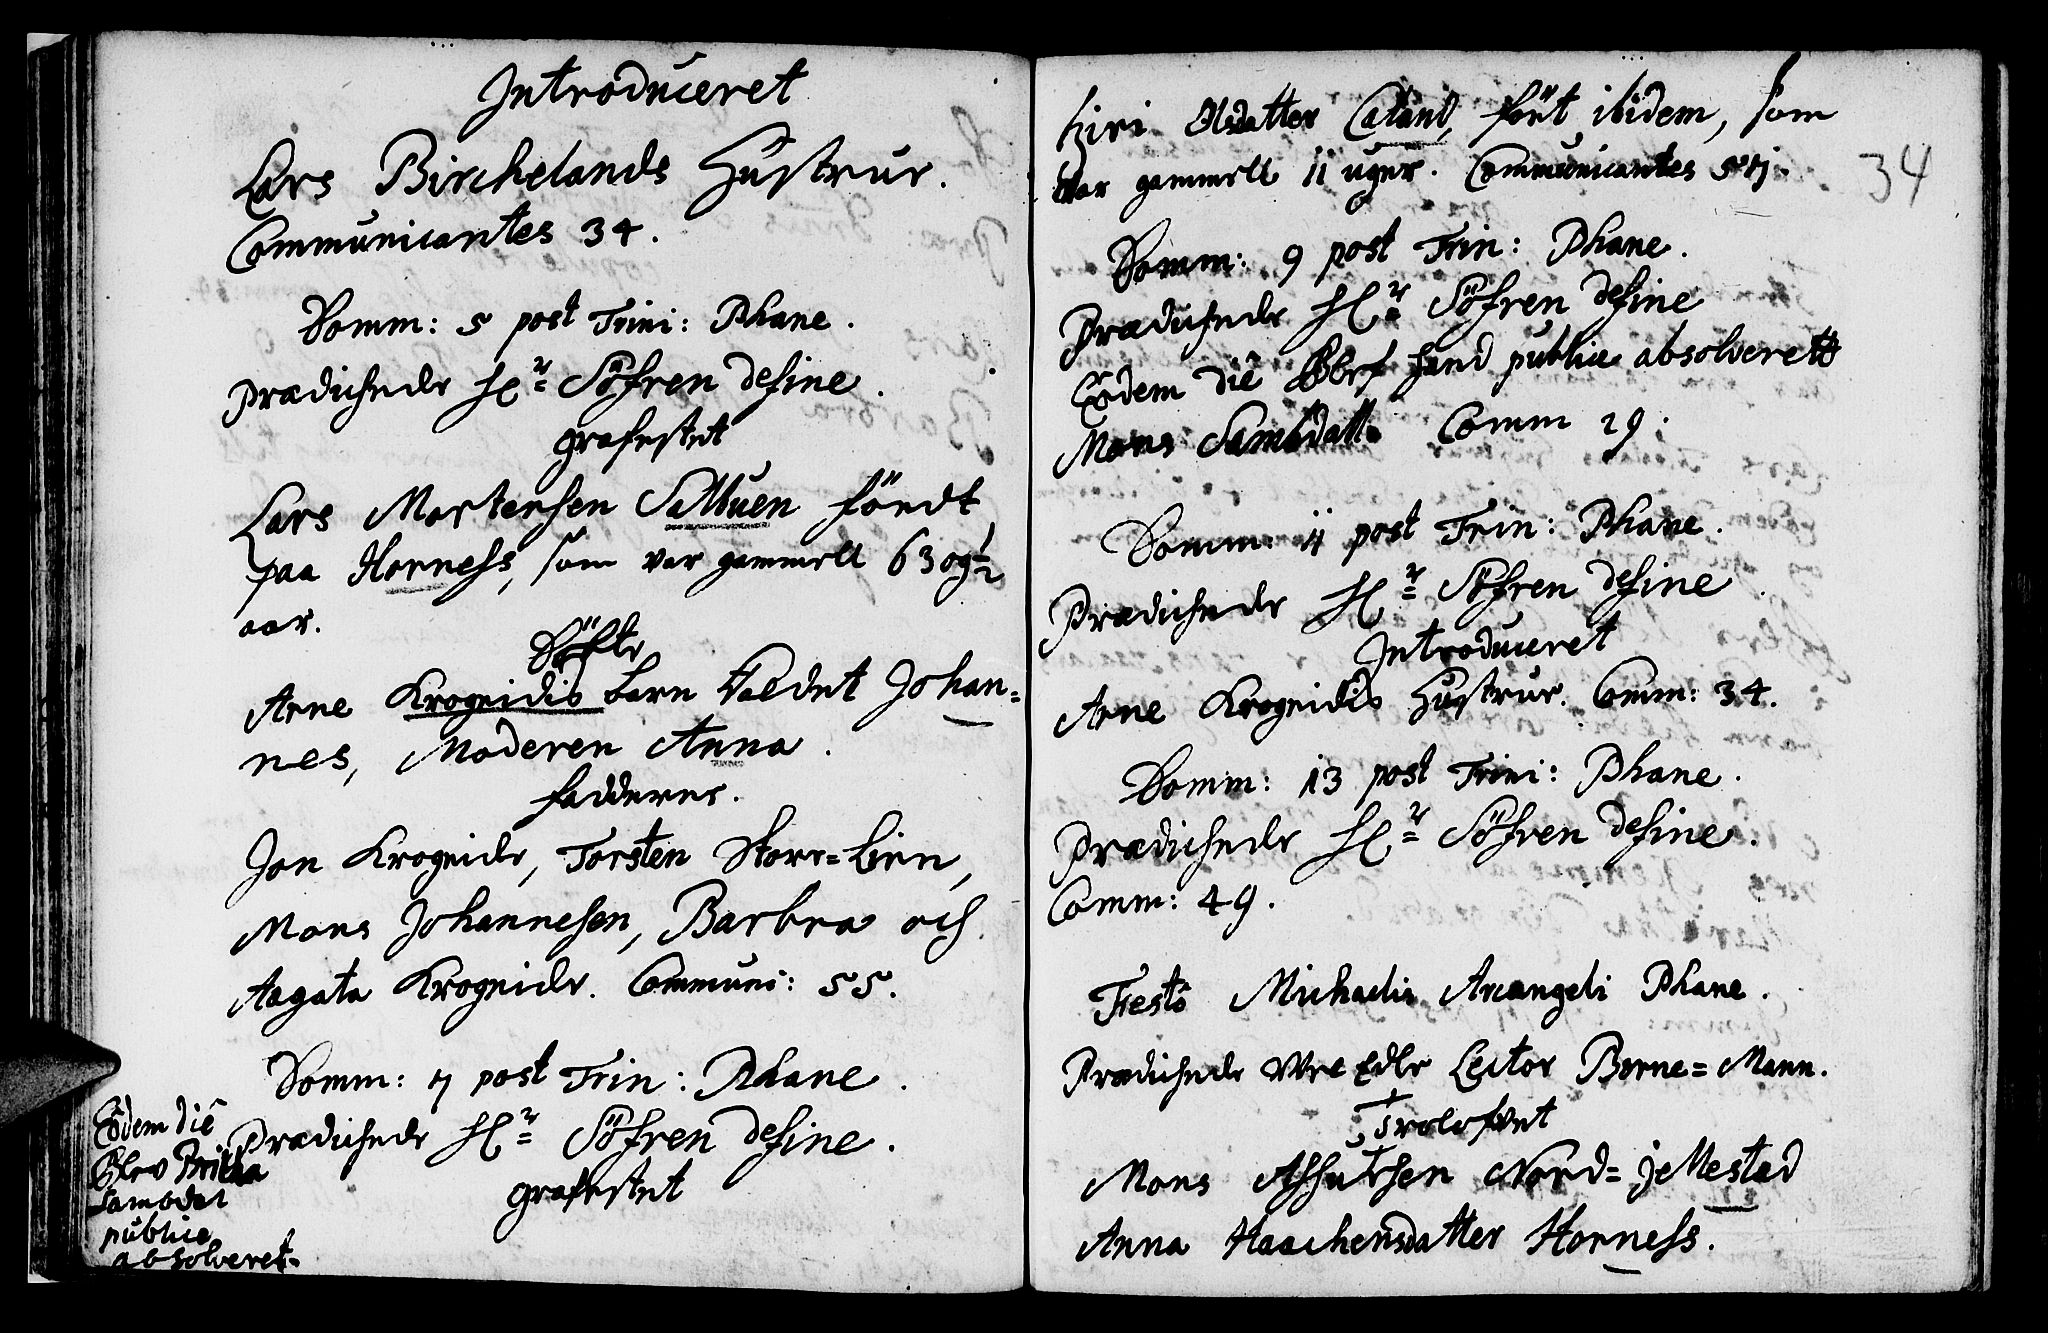 Introduceret
Lars Birchelands Hustrue.
Communicantes 34.
Domm: 5 post Trini: Phane.
Prædichede Hr Söfren Define.
grafestet
Lars Mortensen Salbuen föndt
paa Horness, som var gammell 63 og ½
aar.
Döfte
Arne Krogeidis barn kaldet Johan=
nes, Moderen Anna.
fadderne.
Jon Krogeide, Torsten Store=Lien,
Mons Johannesen, Barbra och
Aagata Krogeide. Communi: 55.
Domm: 7 post Trin: Phane.
Prædichede Hr Söfren Define.
Eodem die
Blev Britha
Samsdat
publice
absolveret.
grafestet
34
Siri Olsdatter Catland, fört ibidem, som
var gammell 11 uger. Communicantes 57.
Domm: 9 post Trin: Phane.
Prædichede Hr Söfren Define
Eodem die Blef hand publice absolverett
Mons Samsdatt. Comm 29.
Domm: 11 post Trin: Phane.
Prædichede Hr Söfren Define
Introduceret
Arne Krogeidis Hustrue. Comm: 34.
Domm: 13 post Trini: Phane.
Prædichede Hr Söfren Define.
Comm: 49.
Festo Michaelis Arcangeli Phane.
Prædichede Vore Edle Lector Borne=Mann.
Trolofvet
Mons Assursen Nord=jellestad
Anna Haachensdatter Horness.